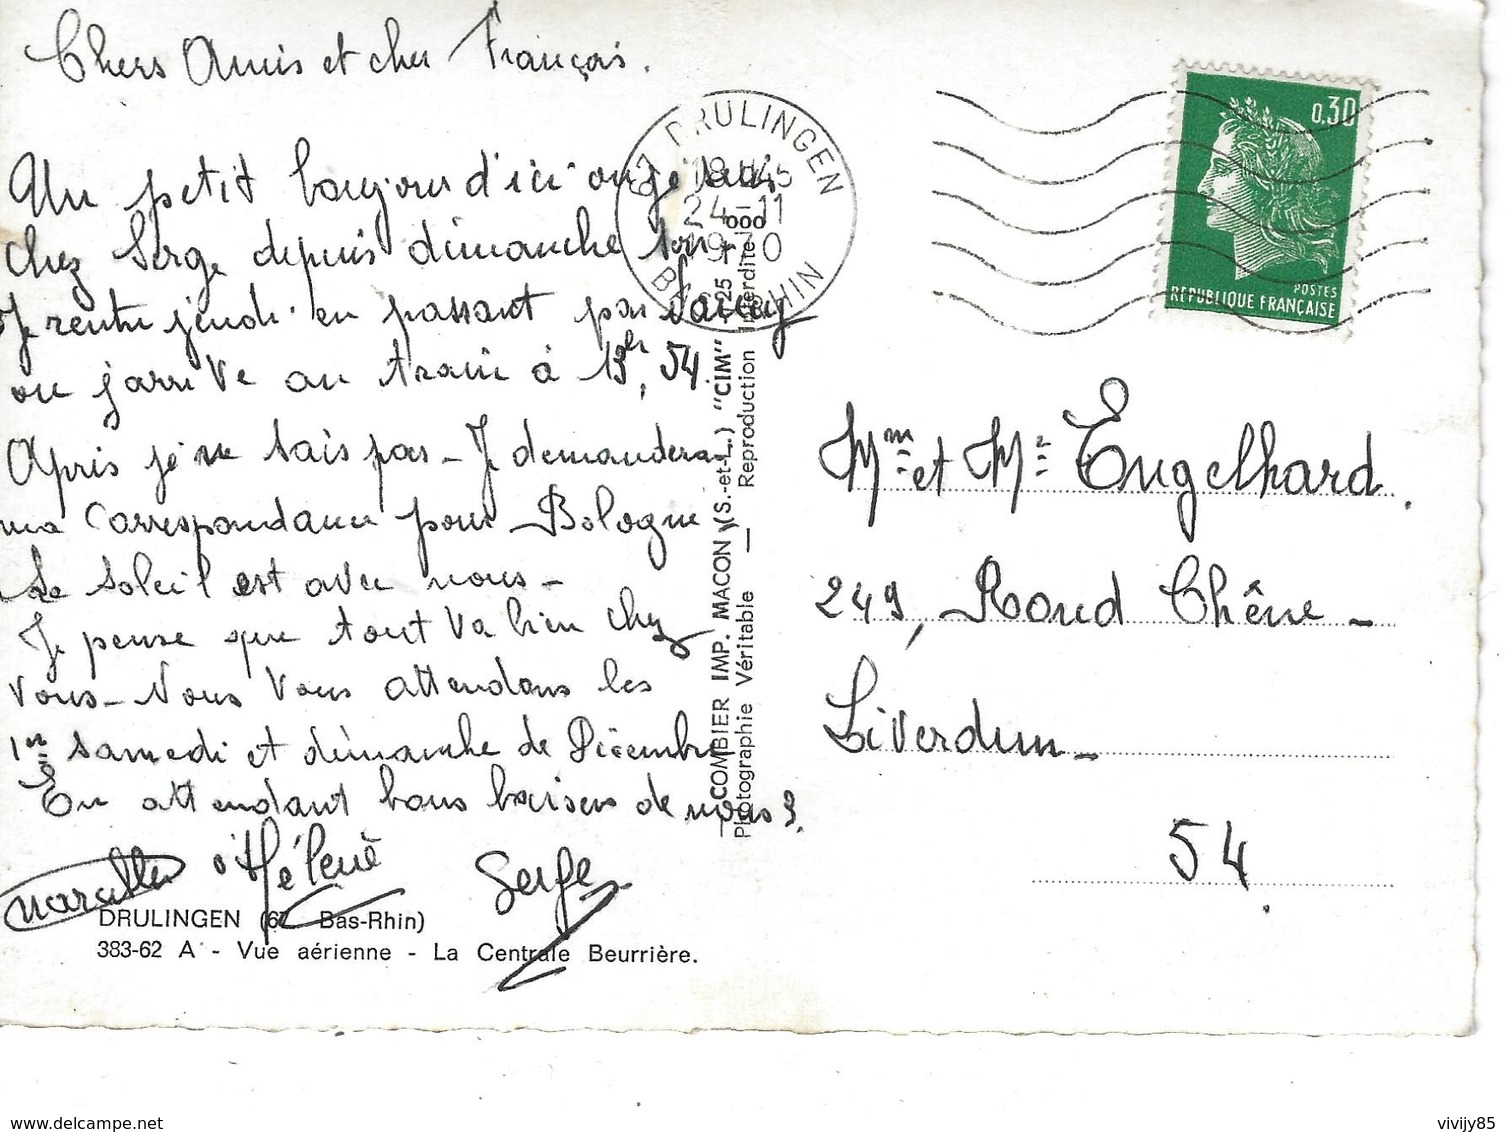 Chers Amis et cher François.
Un petit bonjour d'ici où je suis
chez Serge depuis dimanche soir
Je rentre jeudi en passant par Nancy
ou j'arrive au train à 13h, 54
Après je ne sais pas - Je demanderai
ma correspondance pour Bologne
Le soleil est avec nous -
Je pense que tout va bien chez
vous - Nous vous attendons les
1er samedi et dimanche de Décembre
En attendant bons baisers de nous 3.
Marcelle Hélène Serge
DRULINGEN (67 Bas-Rhin)
383-62 A - Vue aérienne - La Centrale Beurrière.
COMBIER IMP. MACON (S.-et-L.) "CIM"
Photographie Véritable — Reproduction interdite
67 DRULINGEN
18 H45
24-11
1970
BAS-RHIN
0,30
POSTES
REPUBLIQUE FRANÇAISE
Mme et Mr Engelhard.
249, Rond Chêne -
Liverdun -
54.
delcampe.net
vivijy85